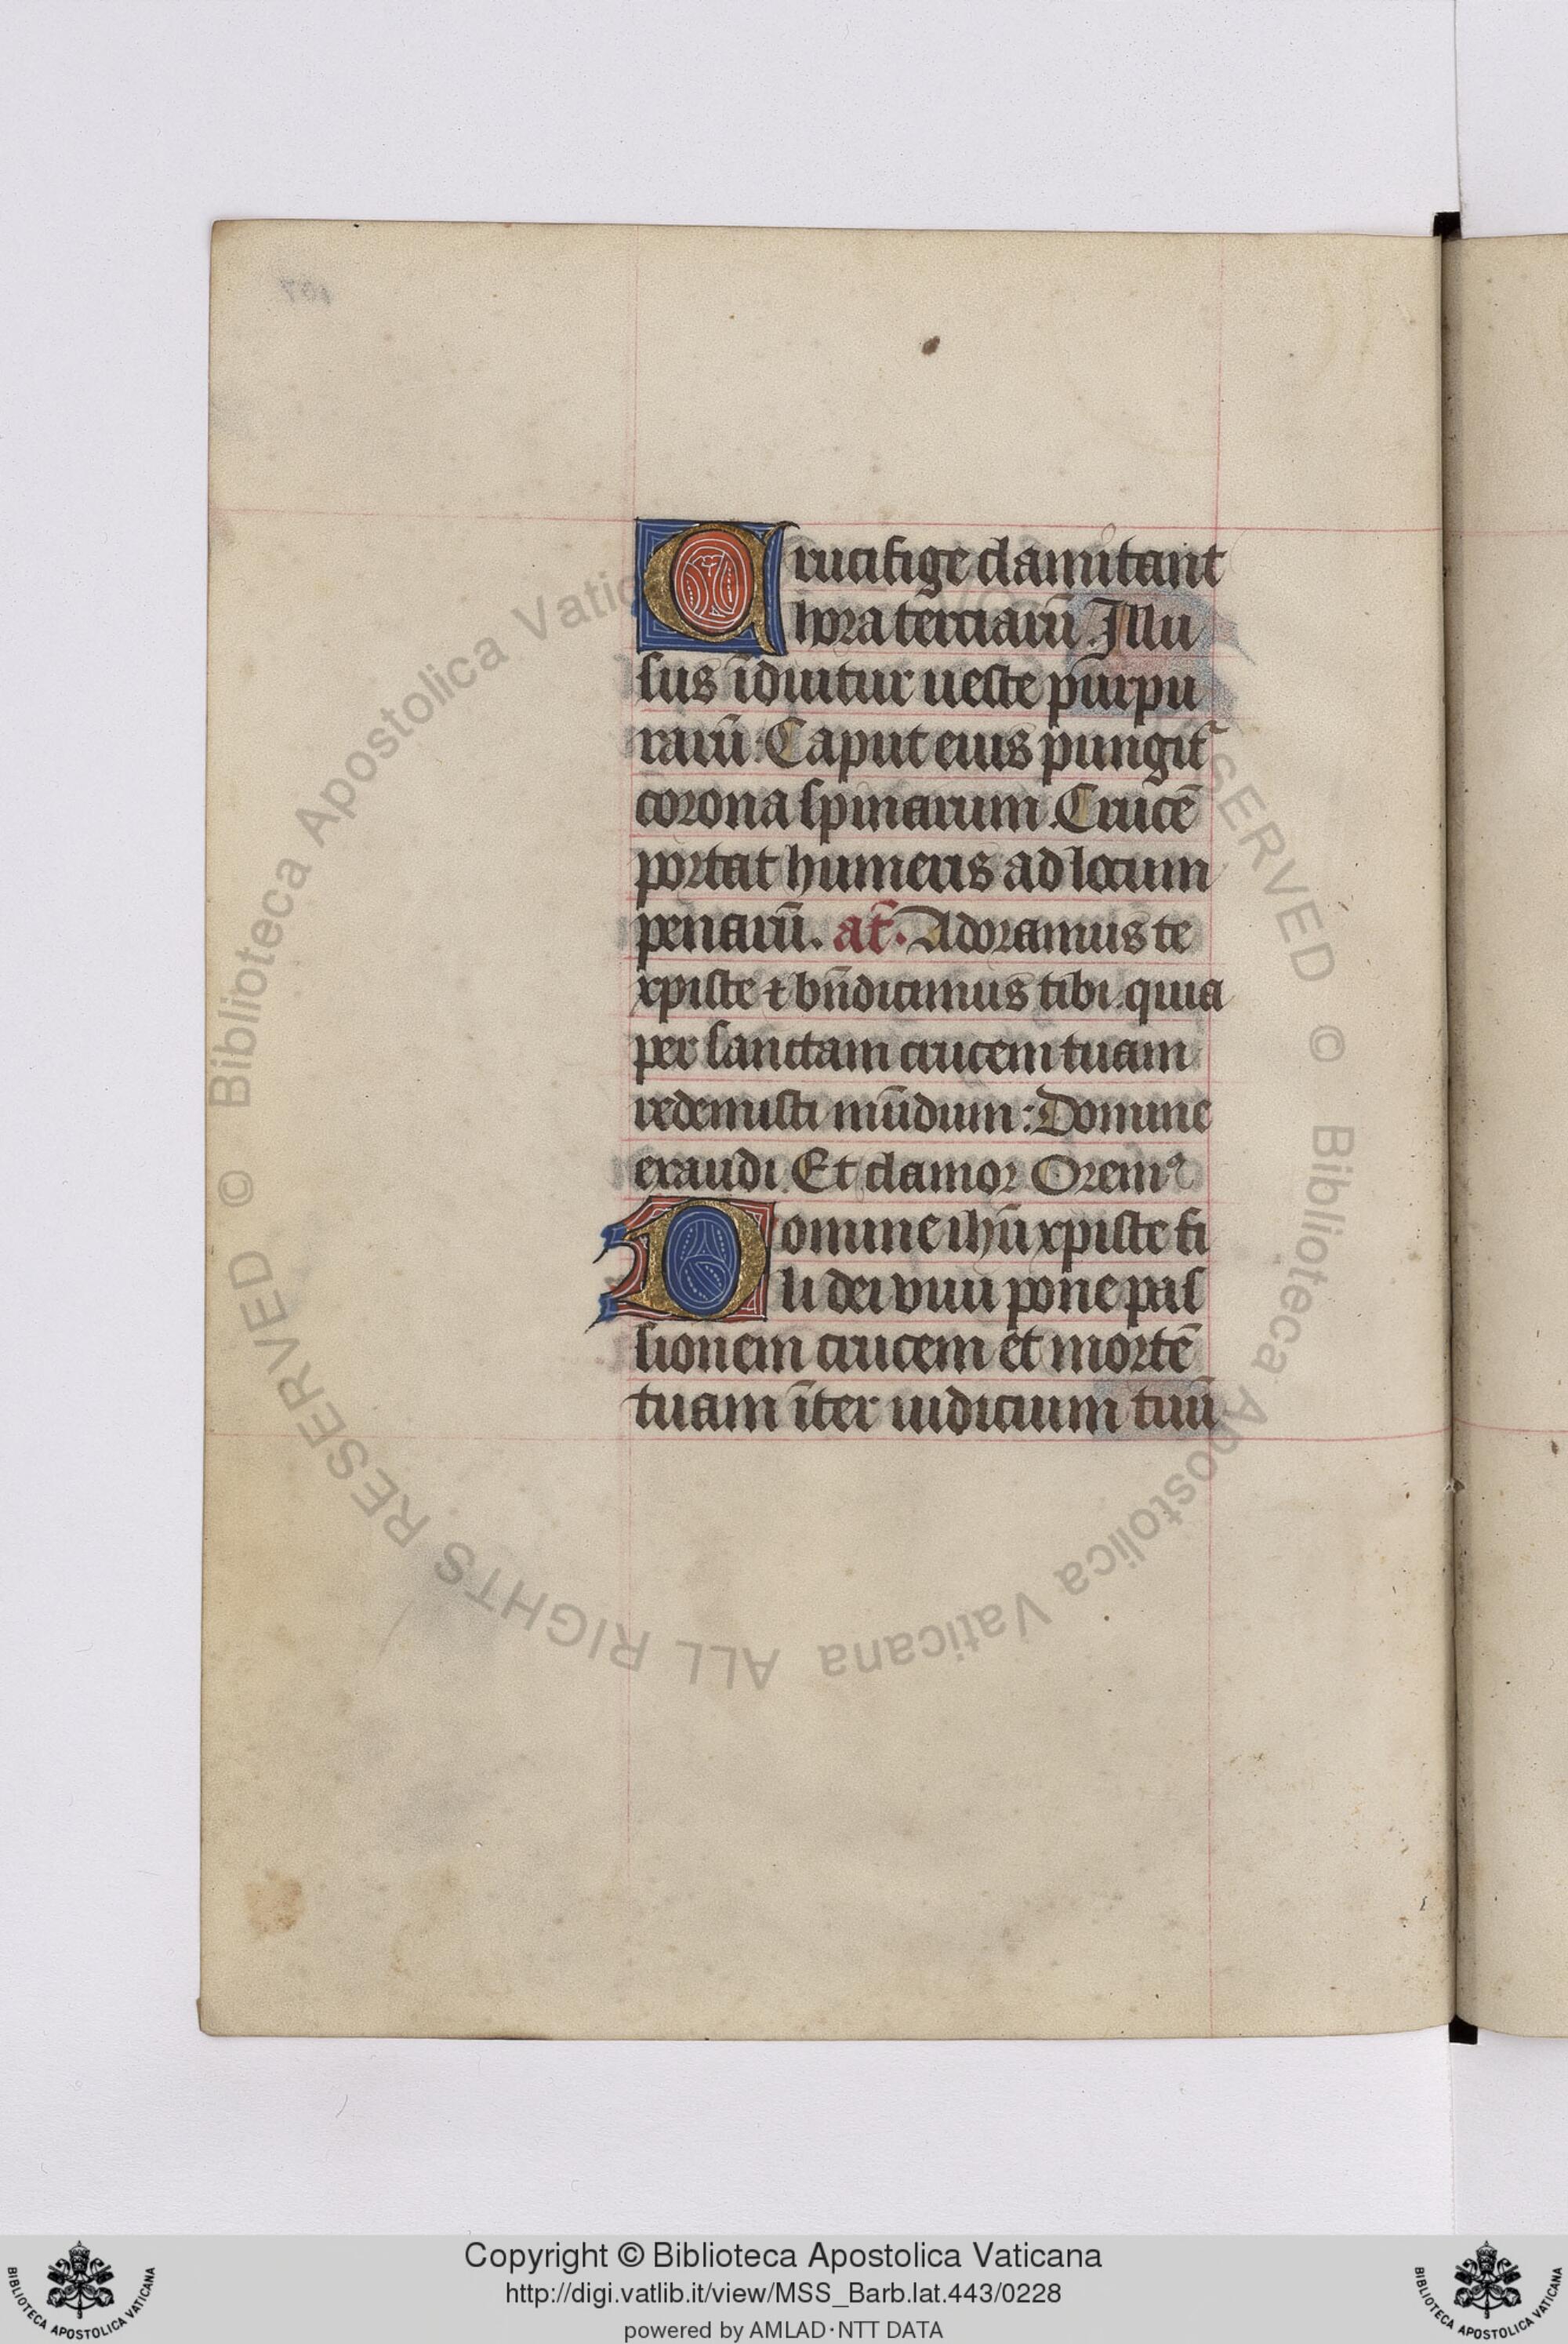 Crucifige clamitant
hora terciarū. Illu
sus īduitur ueste purpu
rarū: Caput eius pungit᷑
corona spinarum. Crucē
portat humeris ad locum
penarū. at̃. Adoramus te
xpiste ⁊ bn̄dicimus tibi. quia
per sanctam crucem tuam
redemisti mūdum: Domine
exaudi. Et clamor Oremꝰ
Domine ihū xpiste fi
li dei viui pone pas
sionem crucem et mortē
tuam īter iudicium tuū
© Biblioteca Apostolica Vaticana ALL RIGHTS RESERVED © Biblioteca Apostolica Vaticana ALL RIGHTS RESERVED
Copyright © Biblioteca Apostolica Vaticana
http://digi.vatlib.it/view/MSS_Barb.lat.443/0228
powered by AMLAD·NTT DATA
BIBLIOTECA APOSTOLICA VATICANA
BIBLIOTECA APOSTOLICA VATICANA